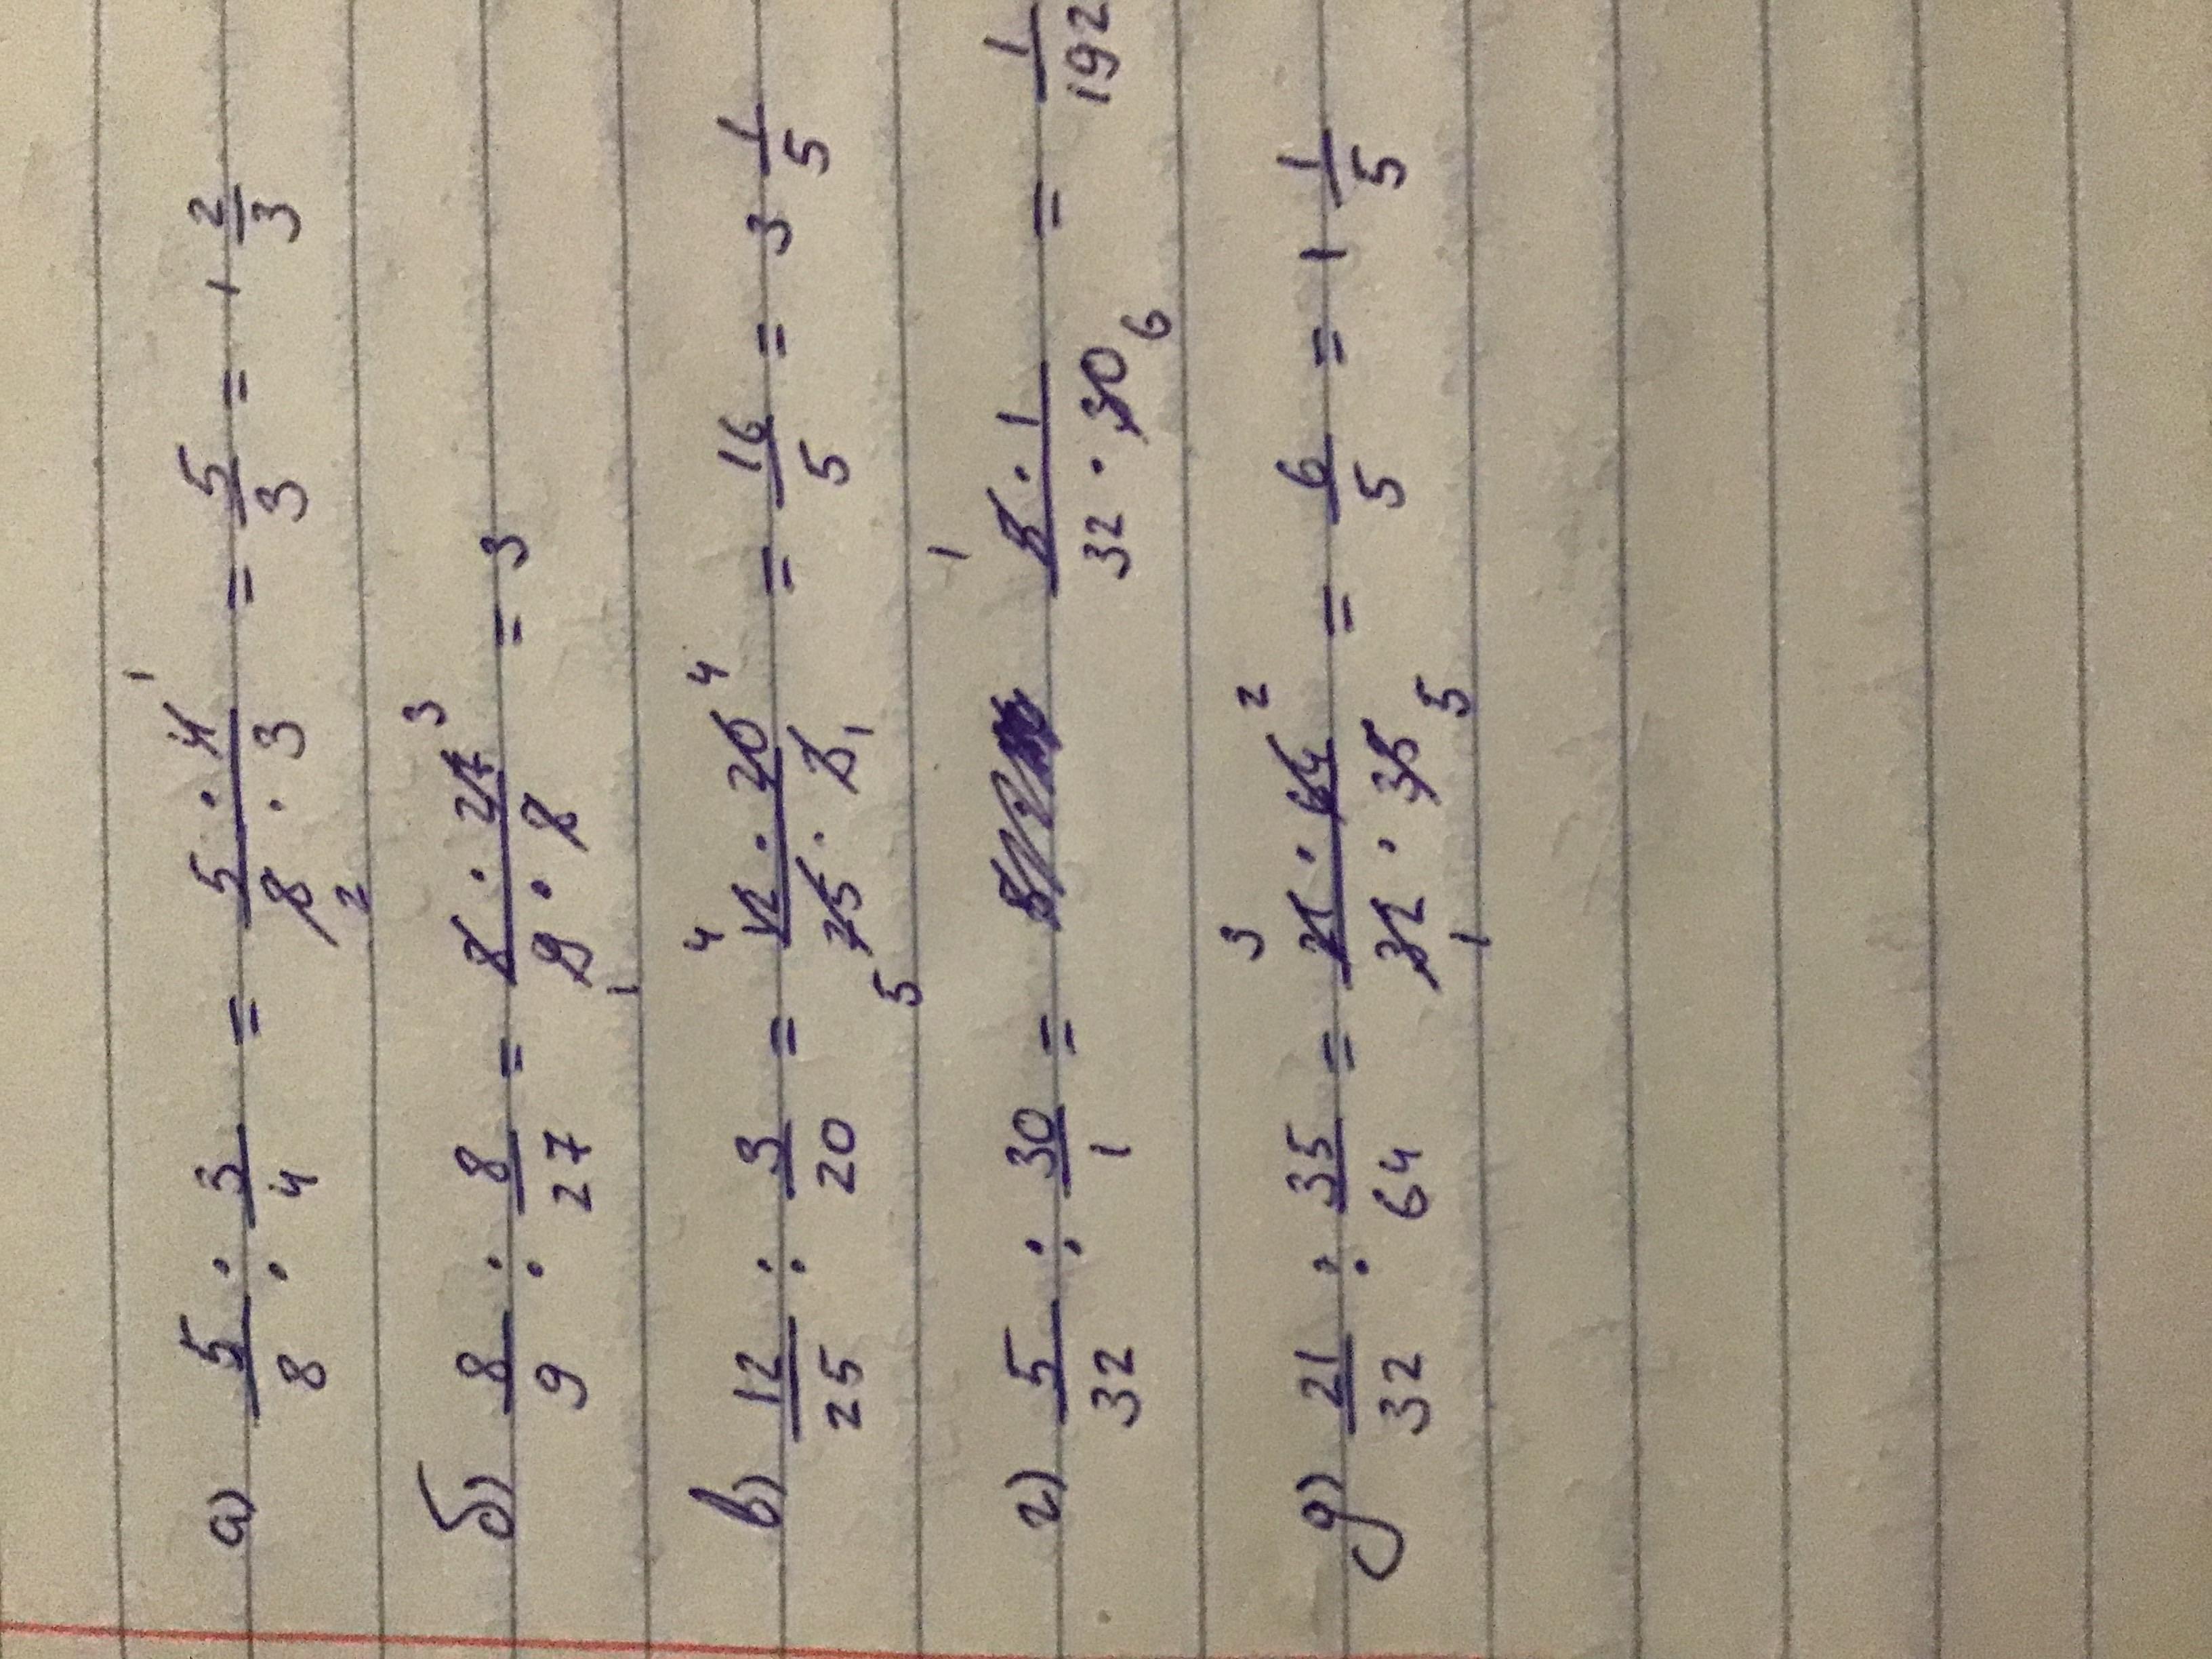 а) 5/8 : 3/4 = 5 · 4 1 / 8 2 · 3 = 5/3 = 1 2/3
б) 8/9 : 8/27 = 8 · 27 3 / 9 1 · 8 = 3
в) 12/25 : 3/20 = 4 12 · 20 4 / 25 5 · 3 1 = 16/5 = 3 1/5
г) 5/32 : 30/1 = 1 5 · 1 / 32 · 30 6 = 1/192
д) 21/32 : 35/64 = 3 21 · 64 2 / 32 1 · 35 5 = 6/5 = 1 1/5